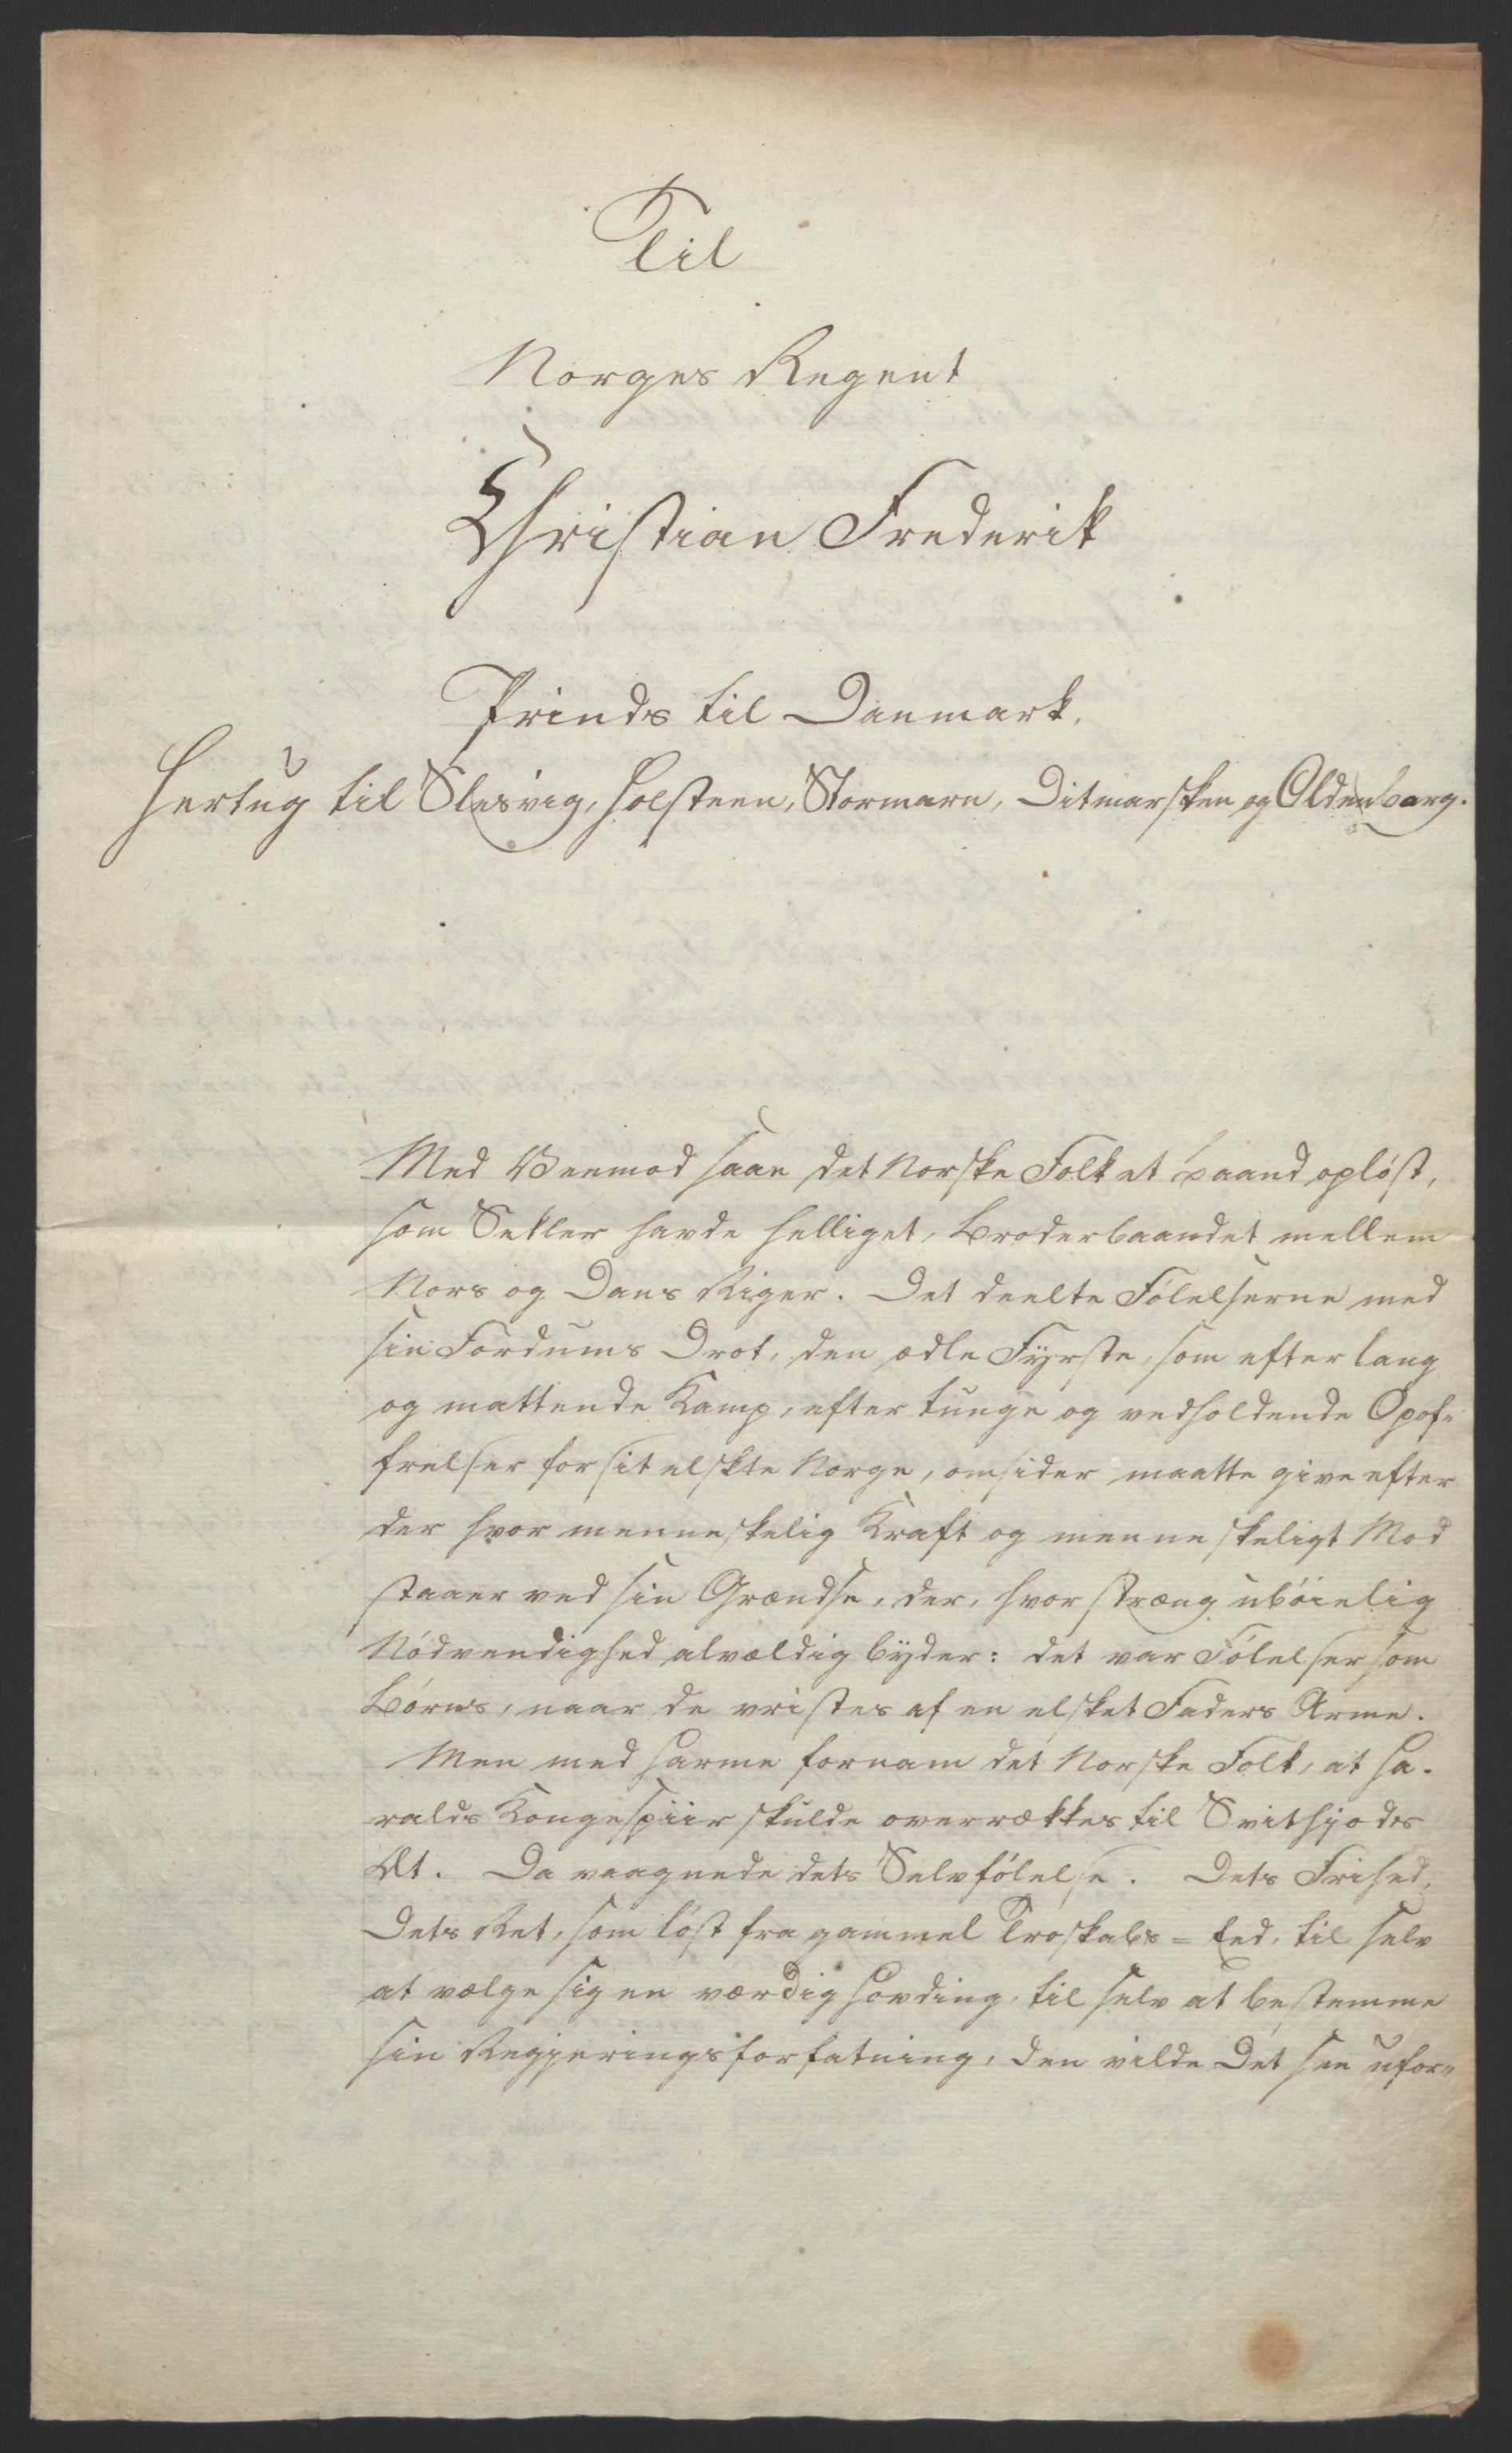 Til
Norges Regent
Christian Frederik
Prinds til Danmark,
Hertug til Slesvig, Holsteen, Stormarn, Ditmarsken og Oldenborg.
Med Veemod saae det Norske Folk et Baand opløst,
som Sekler havde helliget, Broderbaandet mellem
Nors og Dans Riger. Det deelte Følelserne med
sin Fordums Drot, den ædle Fyrste, som efter lang
og mattende Kamp, efter tunge og vedholdende Opof-
frelser for sit elskte Norge, omsider maatte give efter
der hvor menneskelig Kraft og menneskeligt Mod
staaer ved sin Grændse, der, hvor stræng ubøielig
Nødvendighed alvældig byder: det var Følelser som
Børns, naar de vristes af en elsket Faders Arme.
Men med Harme fornam det Norske Folk, at Ha-
ralds Kongespiir skulde overrækkes til Svithjods
Æt. Da vaagnede dets Selvfølelse. Dets Frihed,
Dets Ret, som løst fra gammel Troskabs=Eed, til selv
at vælge sig en værdig Høvding, til selv at bestemme
sin Regjeringsforfatning, den vilde Det see ufor-